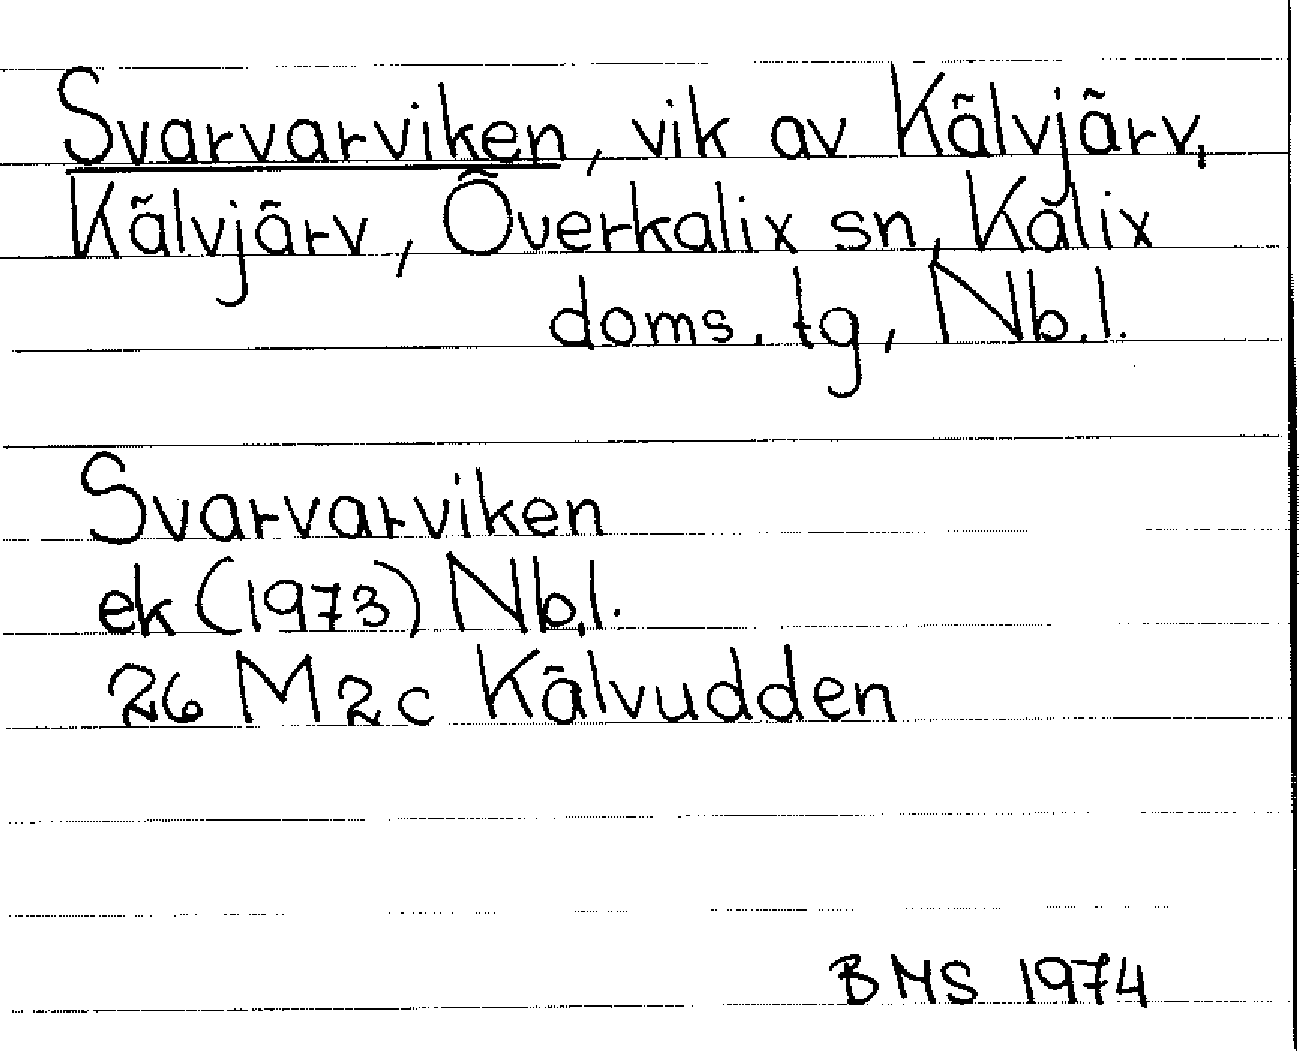 Svarvarviken, vik av Kälvjärv,
Kälvjärv, Överkalix sn, Kalix
doms. tg, Nb.l.
Svarvarviken
ek (1973) Nb.l.
26 M 2c Kälvudden
BMS 1974